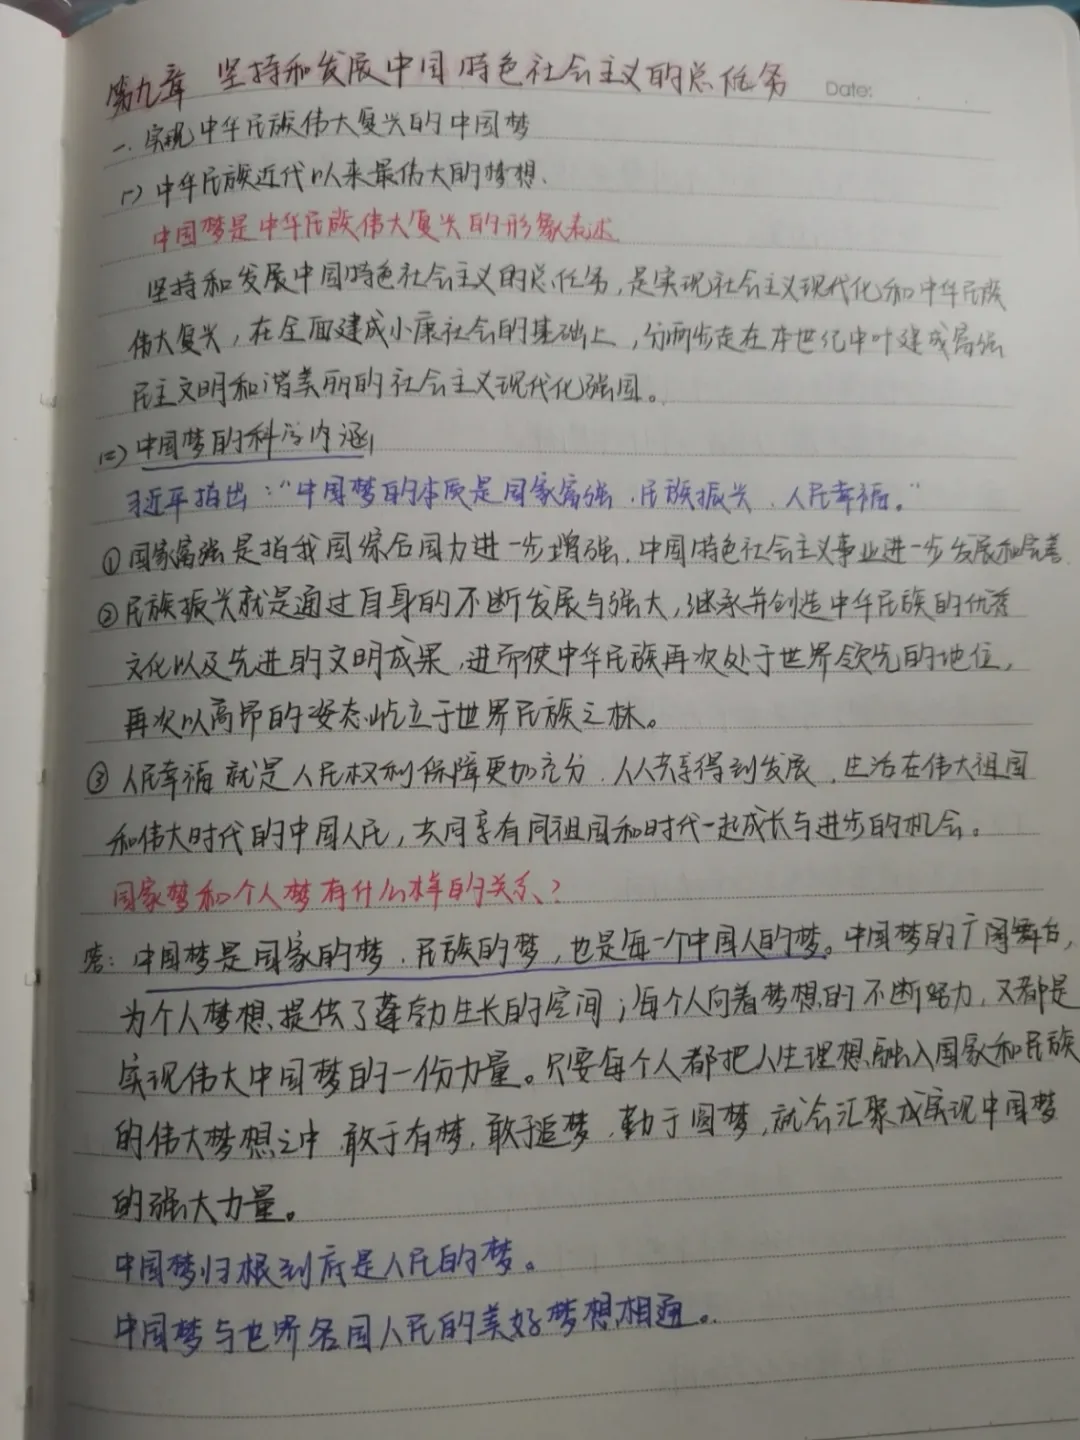 第九章 坚持和发展中国特色社会主义的总任务 Date:
一. 实现中华民族伟大复兴的中国梦
(一) 中华民族近代以来最伟大的梦想.
中国梦是中华民族伟大复兴的形象表述
坚持和发展中国特色社会主义的总任务,是实现社会主义现代化和中华民族
伟大复兴,在全面建成小康社会的基础上,分两步走在本世纪中叶建成富强
民主文明和谐美丽的社会主义现代化强国。
(二) 中国梦的科学内涵
习近平指出:“中国梦的本质是国家富强.民族振兴.人民幸福。”
①国家富强是指我国综合国力进一步增强.中国特色社会主义事业进一步发展和完善
②民族振兴就是通过自身的不断发展与强大,继承并创造中华民族的优秀
文化以及先进的文明成果,进而使中华民族再次处于世界领先的地位,
再次以高昂的姿态屹立于世界民族之林。
③人民幸福就是人民权利保障更加充分.人人共享得到发展.生活在伟大祖国
和伟大时代的中国人民,共同享有同祖国和时代一起成长与进步的机会。
国家梦和个人梦有什么样的关系?
答:中国梦是国家的梦.民族的梦,也是每一个中国人的梦。中国梦的广阔舞台,
为个人梦想提供了蓬勃生长的空间;每个人向着梦想的不断努力,又都是
实现伟大中国梦的一份力量。只要每个人都把人生理想融入国家和民族
的伟大梦想之中.敢于有梦.敢于追梦.勤于圆梦,就会汇聚成实现中国梦
的强大力量。
中国梦归根到底是人民的梦。
中国梦与世界各国人民的美好梦想相通。